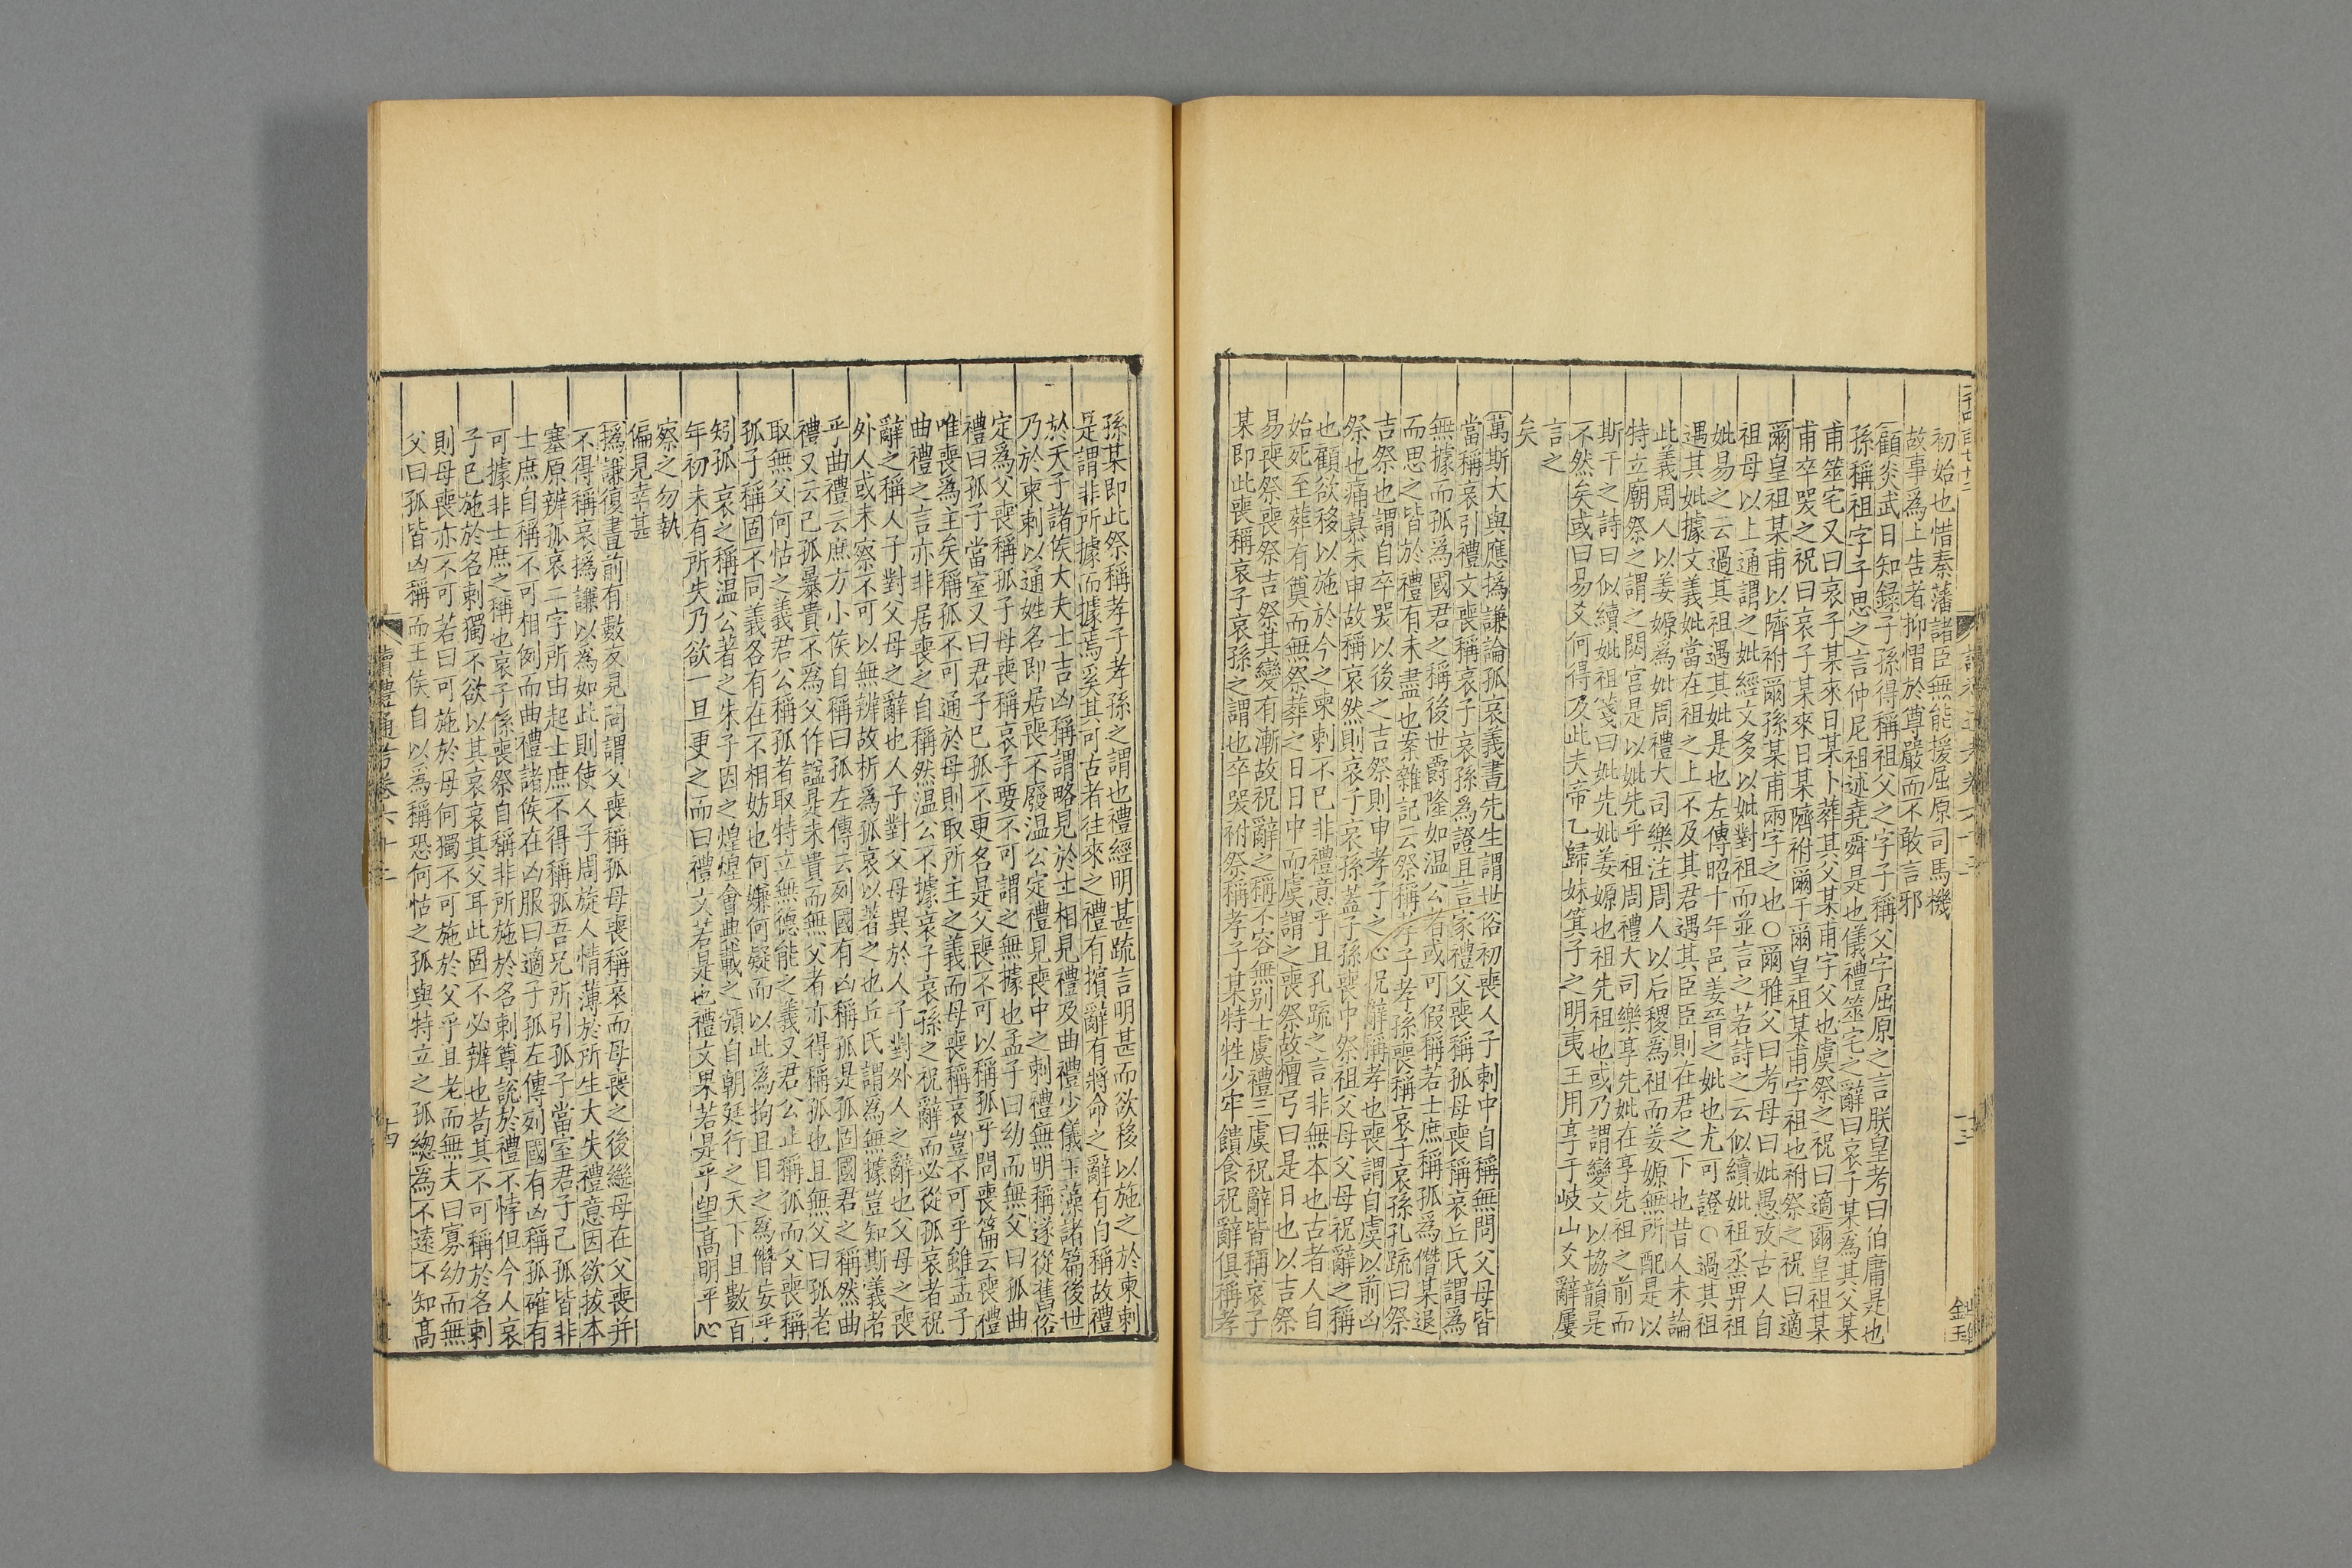 初始也惜秦藩諸臣無能援屈原司馬機
故事為上告者抑慴於尊嚴而不敢言邪
顧炎武日知録子孫得稱祖父之字子稱父字屈原之言朕皇考曰伯庸是也
孫稱祖字子思之言仲尼祖述堯舜是也儀禮筮宅之辭曰哀子某為其父某
甫筮宅又曰哀子某來日某卜葬其父某甫字父也虞祭之祝曰適爾皇祖某
甫卒哭之祝曰哀子某來日某隮祔爾于爾皇祖某甫字祖也祔祭之祝曰適
爾皇祖某甫以隮祔爾孫某甫兩字之也○爾雅父曰考母曰妣愚攷古人自
祖母以上通謂之妣經文多以妣對祖而並言之若詩之云似續妣祖烝畀祖
妣易之云過其祖遇其妣是也左傳昭十年邑姜晉之妣也尤可證○過其祖
遇其妣據文義妣當在祖之上不及其君遇其臣臣則在君之下也昔人未論
此義周人以姜嫄為妣周禮大司樂注周人以后稷為祖而姜嫄無所配是以
特立廟祭之謂之閟宮是以妣先乎祖周禮大司樂享先妣在享先祖之前而
斯干之詩曰似續妣祖箋曰妣先妣姜嫄也祖先祖也或乃謂變文以協韻是
不然矣或曰易爻何得及此夫帝乙歸妹箕子之明夷王用享于岐山爻辭屢
言之
矣
萬斯大與應撝謙論孤哀義書先生謂世俗初喪人子刺中自稱無問父母皆
當稱哀引禮文喪稱哀子哀孫為證且言家禮父喪稱孤母喪稱哀丘氏謂為
無據而孤為國君之稱後世爵隆如温公者或可假稱若士庶稱孤為僭某退
而思之皆於禮有未盡也案雜記云祭稱孝子孝孫喪稱哀子哀孫孔疏曰祭
吉祭也謂自卒哭以後之吉祭則申孝子之心祝辭稱孝也喪謂自虞以前凶
祭也痛慕未申故稱哀然則哀子哀孫蓋子孫喪中祭祖父母父母祝辭之稱
也顧欲移以施於今之柬刺不已非禮意乎且孔疏之言非無本也古者人自
始死至葬有奠而無祭葬之日日中而虞謂之喪祭故檀弓曰是日也以吉祭
易喪祭喪祭吉祭其變有漸故祝辭之稱不容無别士虞禮三虞祝辭皆稱哀子
某即此喪稱哀子哀孫之謂也卒哭祔祭稱孝子某特牲少牢饋食祝辭俱稱孝
孫某即此祭稱孝子孝孫之謂也禮經明甚疏言明甚而欲移以施之於柬刺
是謂非所據而據焉奚其可古者往來之禮有擯辭有將命之辭有自稱故禮
於天子諸侯大夫士吉凶稱謂略見於士相見禮及曲禮少儀玉藻諸篇後世
乃於柬刺以通姓名即居喪不廢温公定禮見喪中之刺禮無明稱遂從舊俗
定為父喪稱孤子母喪稱哀子要不可謂之無據也孟子曰幼而無父曰孤曲
禮曰孤子當室又曰君子已孤不更名是父喪不可以稱孤乎問喪篇云喪禮
唯喪為主矣稱孤不可通於母則取所主之義而母喪稱哀豈不可乎雖孟子
曲禮之言亦非居喪之自稱然温公不據哀子哀孫之祝辭而必從孤哀者祝
辭之稱人子對父母之辭也人子對父母異於人子對外人之辭也父母之喪
外人或未察不可以無辨故析為孤哀以著之也丘氏謂為無據豈知斯義者
乎曲禮云庶方小侯自稱曰孤左傳云列國有凶稱孤是孤固國君之稱然曲
禮又云己孤暴貴不為父作諡是未貴而無父者亦得稱孤也且無父曰孤老
取無父何怙之義君公稱孤者取特立無德能之義又君公止稱孤而父喪稱
孤子稱固不同義各有在不相妨也何嫌何疑而以此為拘且目之為僭妄乎
矧孤哀之稱温公著之朱子因之煌煌會典載之頒自朝廷行之天下且數百
年初未有所失乃欲一旦更之而曰禮文若是也禮文果若是乎望髙明平心
察之勿執
偏見幸甚
撝謙復書前有數友見問謂父喪稱孤母喪稱哀而母喪之後繼母在父喪并
不得稱哀撝謙以為如此則使人子周旋人情薄於所生大失禮意因欲拔本
塞原辨孤哀二字所由起士庶不得稱孤吾兄所引孤子當室君子己孤皆非
士庶自稱不可相例而曲禮諸侯在凶服曰適子孤左傳列國有凶稱孤確有
可據非士庶之稱也哀子係喪祭自稱非所施於名刺尊說於禮不悖但今人哀
子已施於名刺獨不欲以其哀哀其父耳此固不必辨也苟其不可稱於名刺
則母喪亦不可若曰可施於母何獨不可施於父乎且老而無夫曰寡幼而無
父曰孤皆凶稱而王侯自以為稱恐何怙之孤與特立之孤緫為不遠不知髙
讀禮通考卷六十三
十四